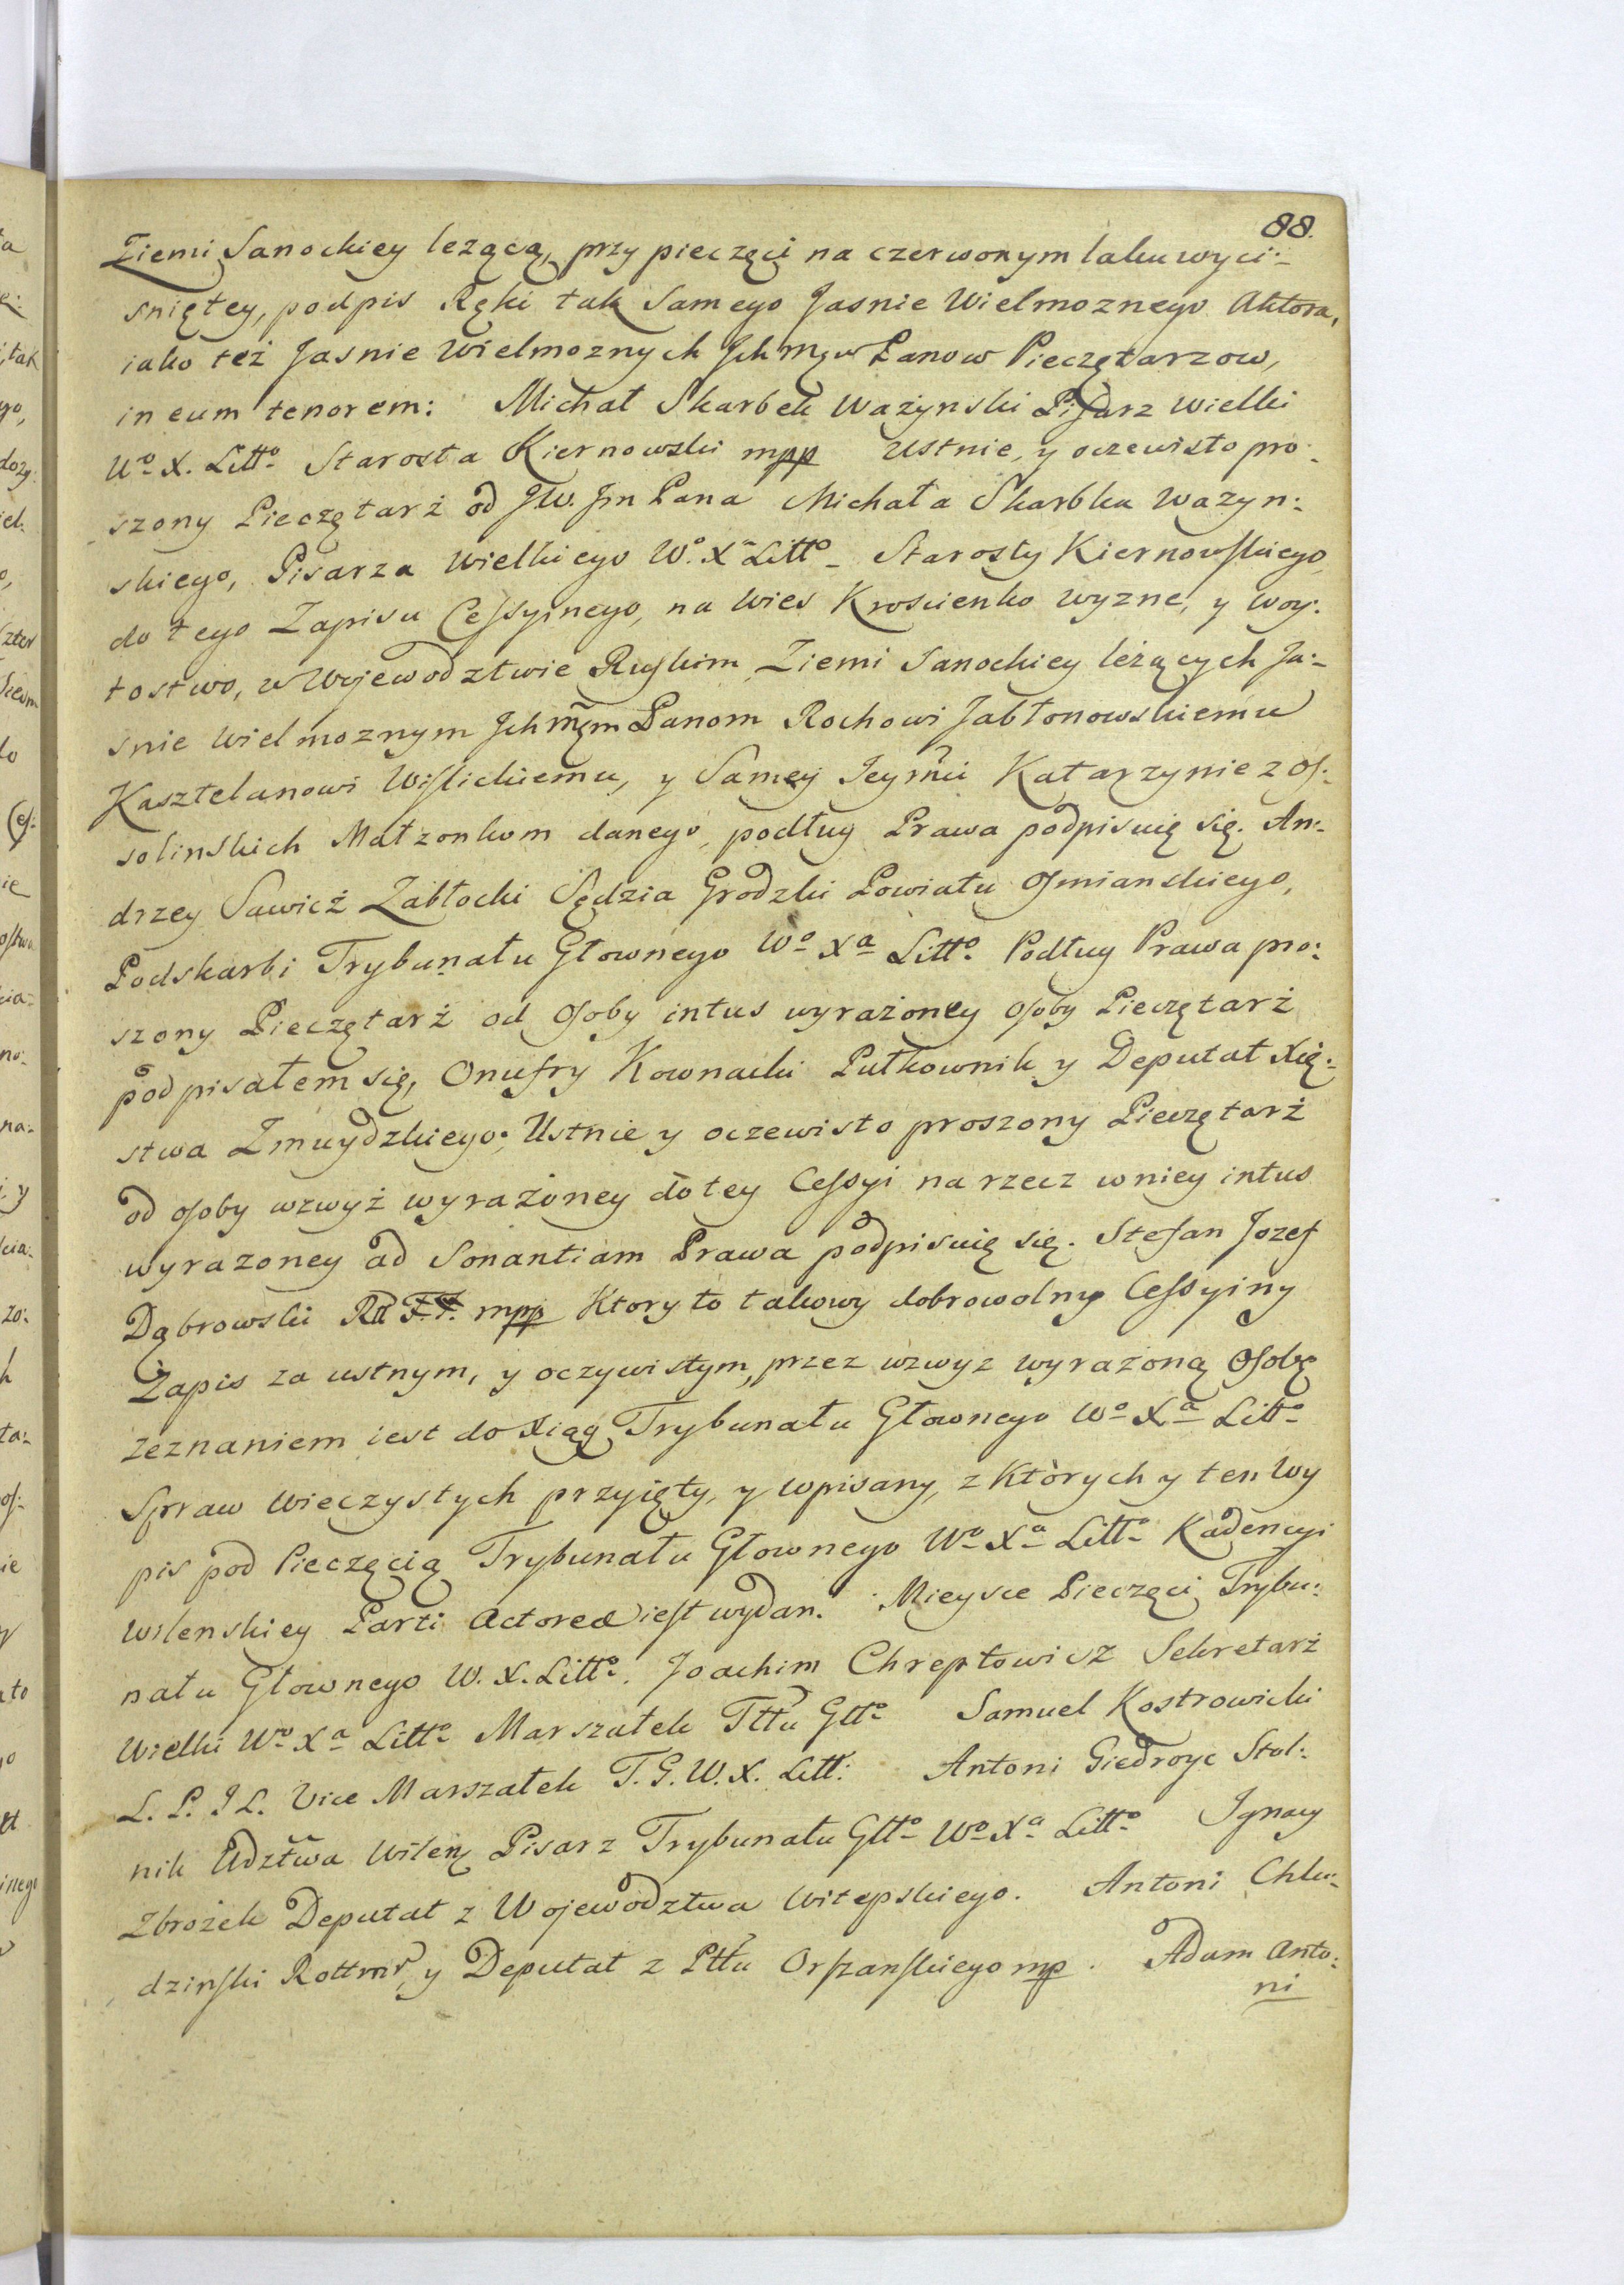 88.
Ziemi Sanockiey leżącą, przy pieczęci na czerwonym laku wyci:
sniętey, podpis Ręki tak Samego Jasnie Wielmoznego Aktora,
iako też Jasnie Wielmoznych Panow Pieczętarzow,
in eum tenorem: Michał Skarbek Ważynski Pisarz Wielki
Wo X. Litto Starosta Kiernowski mpp Ustnie, y oczewisto pro:
szony Pieczętarż od JW. Jm Pana Michała Skarbka Ważyn:
skiego, Pisarza Wielkiego Wo Xa Litto Starosty Kiernowskiego,
do tego Zapisu Cessyinego, na Wies Kroscienko wyzne, y Woy:
tostwo, w Wojewodztwie Ruskim Ziemi Sanockiey leżących Ja:
snie Wielmoznym Panom Rochowi Jabłonowskiemu
Kasztelanowi Wislickiemu, y Samey Jeymci Katarzynie z Os:
solinskich Małzonkom danego, podług Prawa podpisuię się. An:
drzey Sawicż Zabłocki Sędzia Grodzki Powiatu Osmianskiego,
Podskarbi Trybunału Głownego Wo Xa Litto Podług Prawa pro:
szony Pieczętarż od Osoby intus wyrażoney osoby Pieczętarż
podpisałem się, Onufry Kownacki Pułkownik y Deputat Xię:
stwa Zmuydzkiego; Ustnie y oczewisto proszony Pieczętarż
od osoby wzwyż wyrażoney do tey Cessyi na rzecz w niey intus
wyrazoney ad Sonantiam Prawa podpisuię się. Stefan Jozef
Dąbrowski mpp Ktory to takowy dobrowolny Cessyiny
Zapis za ustnym, y oczywistym, przez wzwyz wyrażoną Osobę
zeznaniem iest do Xiąg Trybunału Głownego Wo Xa Litto
Spraw Wieczystych przyięty, y wpisany, z Których y ten Wy
pis pod Pieczęcią Trybunału Głownego Wo Xa Litto Kadencyi
Wilenskiey Parti Actoreæ iest wydan. Mieysce Pieczęci Trybu:
nału Głownego W. X. Litto. Joachim Chreptowicz Sekretarż
Wielki Wo Xa Litto Marszałek Tłłu Głło Samuel Kostrowicki
L. P. I L. Vice Marszałek T. G. W. X. Litt: Antoni Giedroyc Stol:
nik Wdztwa Wilen Pisarz Trybunału Głło Wo Xa Litto Ignacy
Zbrożek Deputat z Wojewodztwa Witepskiego. Antoni Chlu:
dzinski Rottmr, y Deputat z Pttu Orszanskiego mp. Adam Anto:
ni